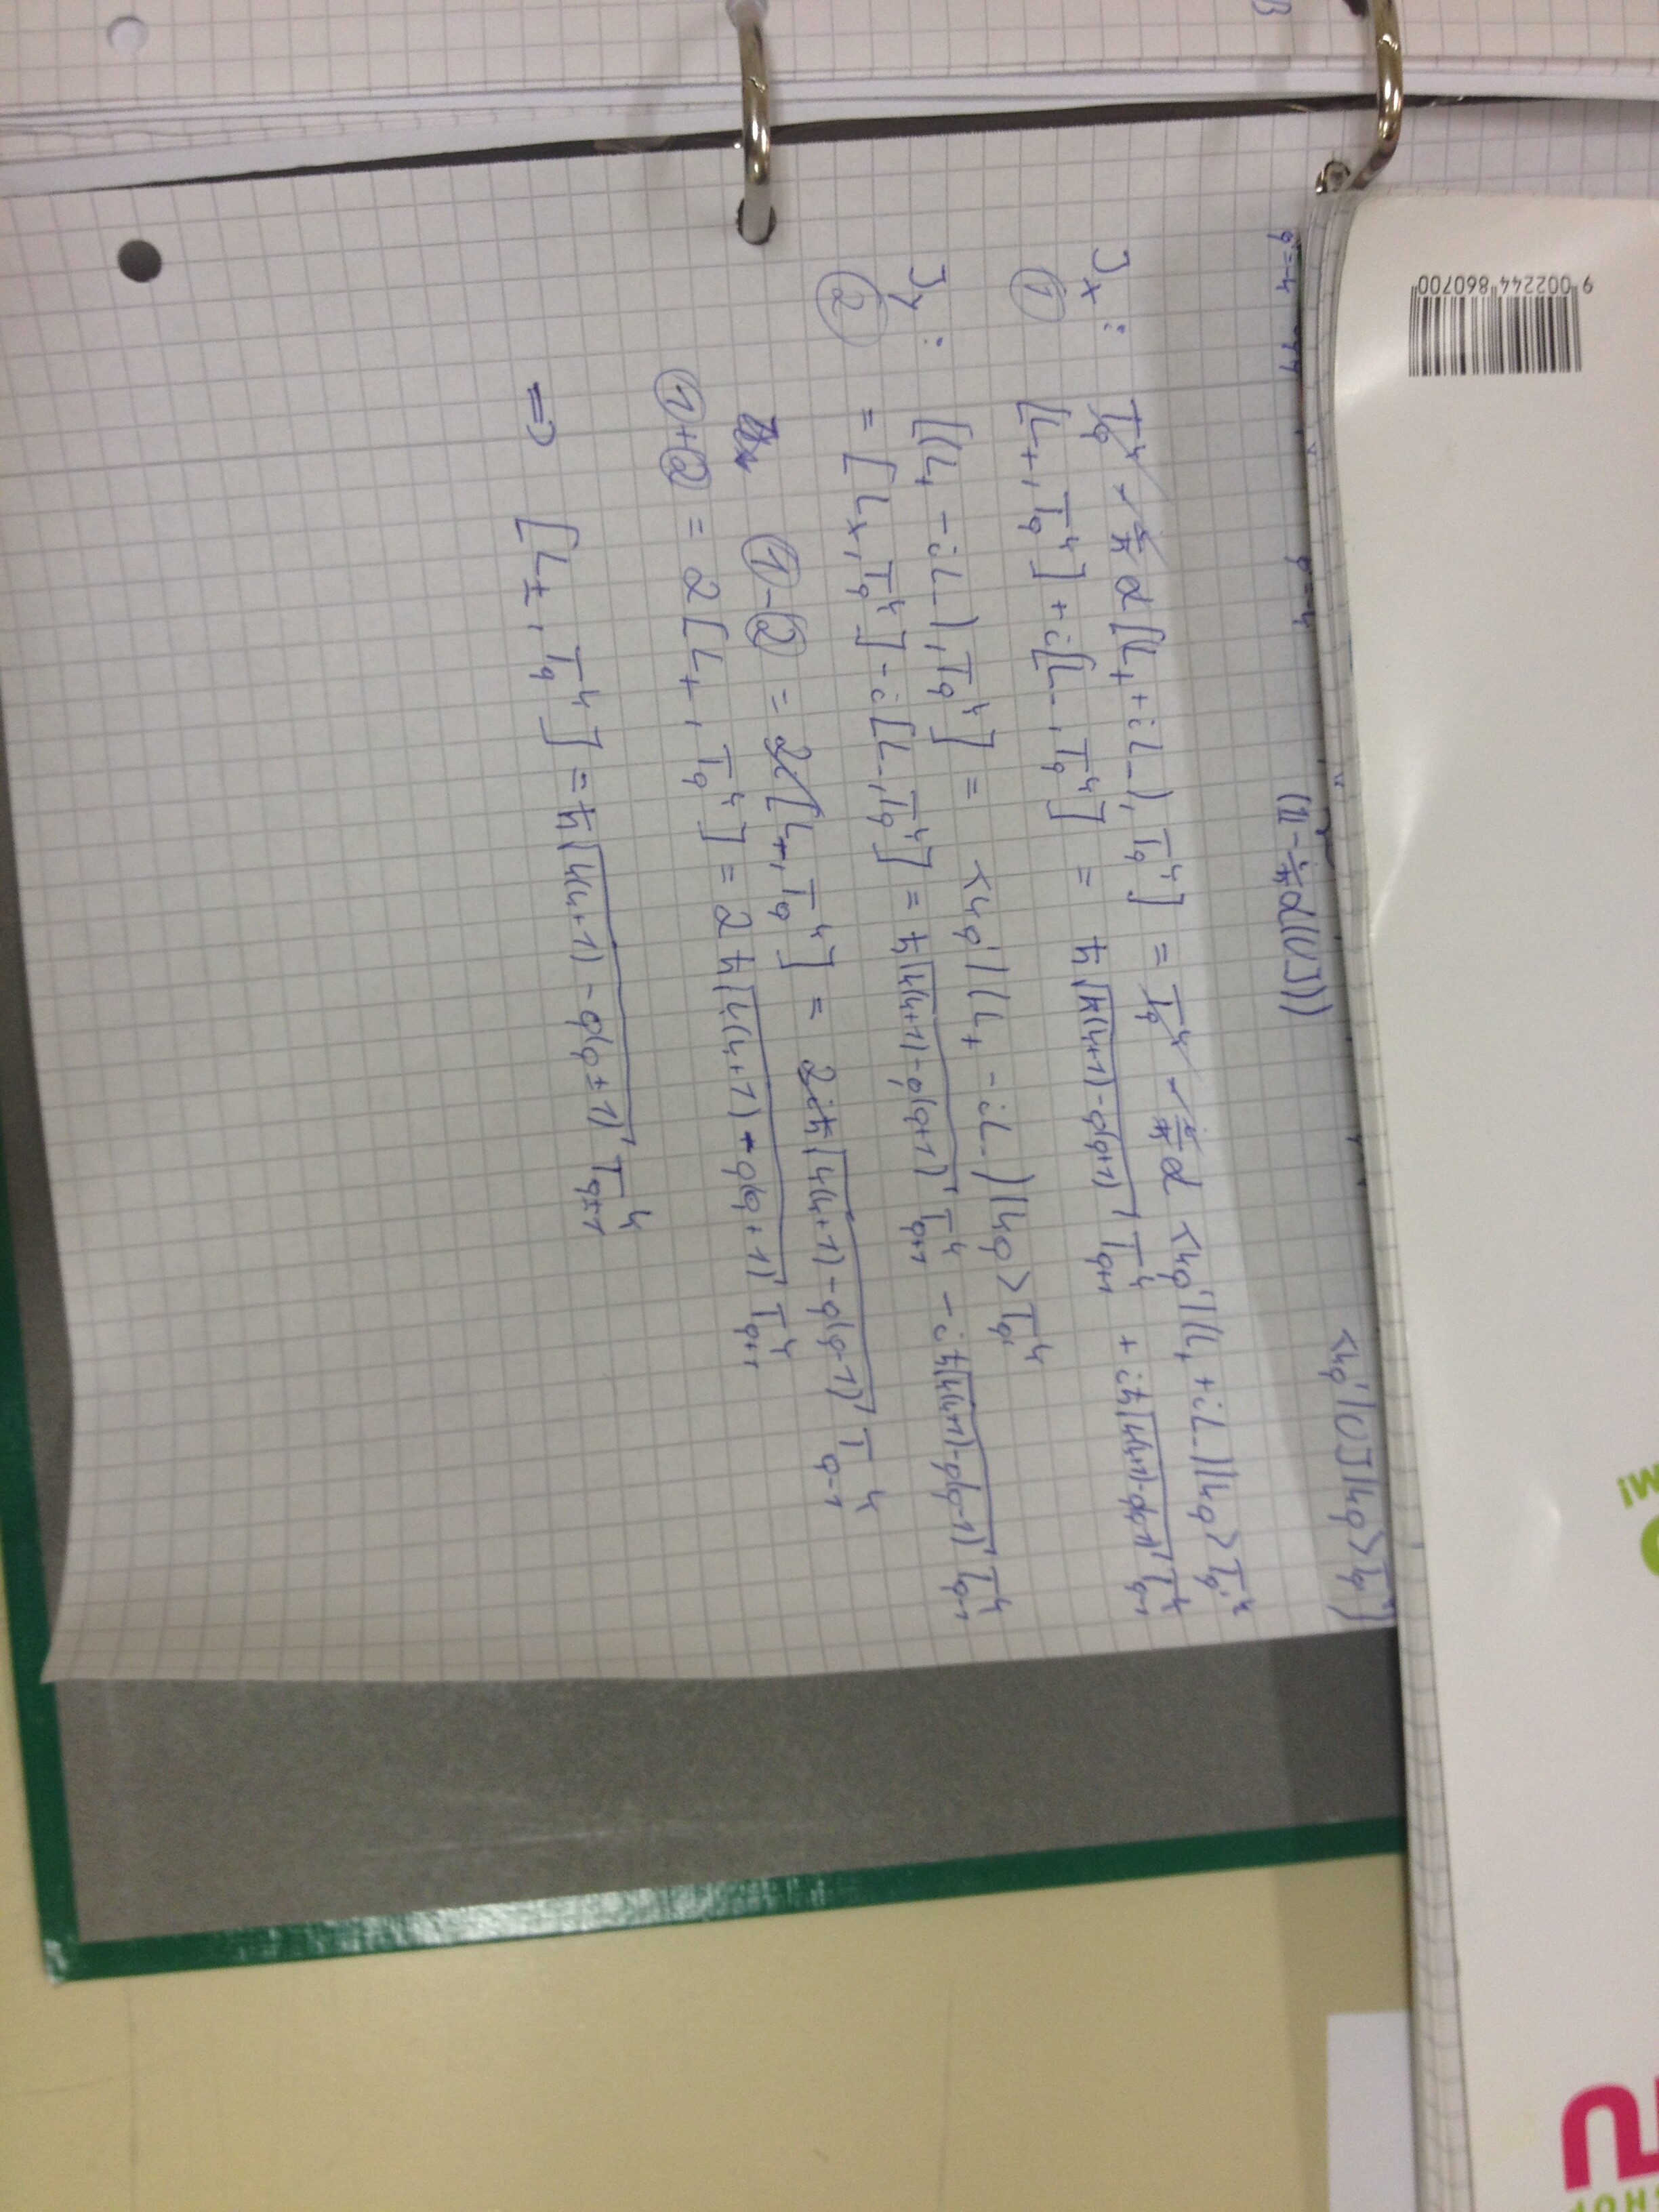 <4q'|UJ|4q> T_q'^4)
(1l - i/ħ α(UJ))
q=-4 q=-4
J_x: T_q^4 - i/ħ α[(L_+ + iL_-), T_q^4] = T_q^4 - i/ħ α <4q'|(L_+ + iL_-)|4q> T_q'^4
① [L_+, T_q^4] + i[L_-, T_q^4] = ħ√(4(4+1) - q(q+1)) T_{q+1}^4 + iħ√(4(4+1) - q(q-1)) T_{q-1}^4
J_y: [(L_+ - iL_-), T_q^4] = <4q'|(L_+ - iL_-)|4q> T_q'^4
② = [L_x, T_q^4] - i[L_-, T_q^4] = ħ√(4(4+1) - q(q+1)) T_{q+1}^4 - iħ√(4(4+1) - q(q-1)) T_{q-1}^4
① - ② = 2i[L_-, T_q^4] = 2iħ√(4(4+1) - q(q-1)) T_{q-1}^4
① + ② = 2[L_+, T_q^4] = 2ħ√(4(4+1) - q(q+1)) T_{q+1}^4
=> [L_±, T_q^4] = ħ√(4(4+1) - q(q±1)) T_{q±1}^4
9 002244 860700